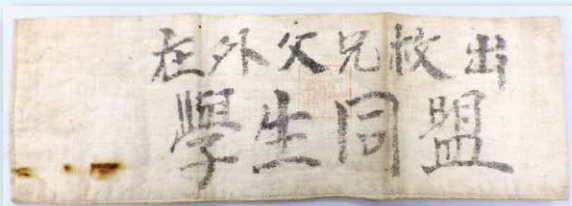 在外父兄救出
學生同盟